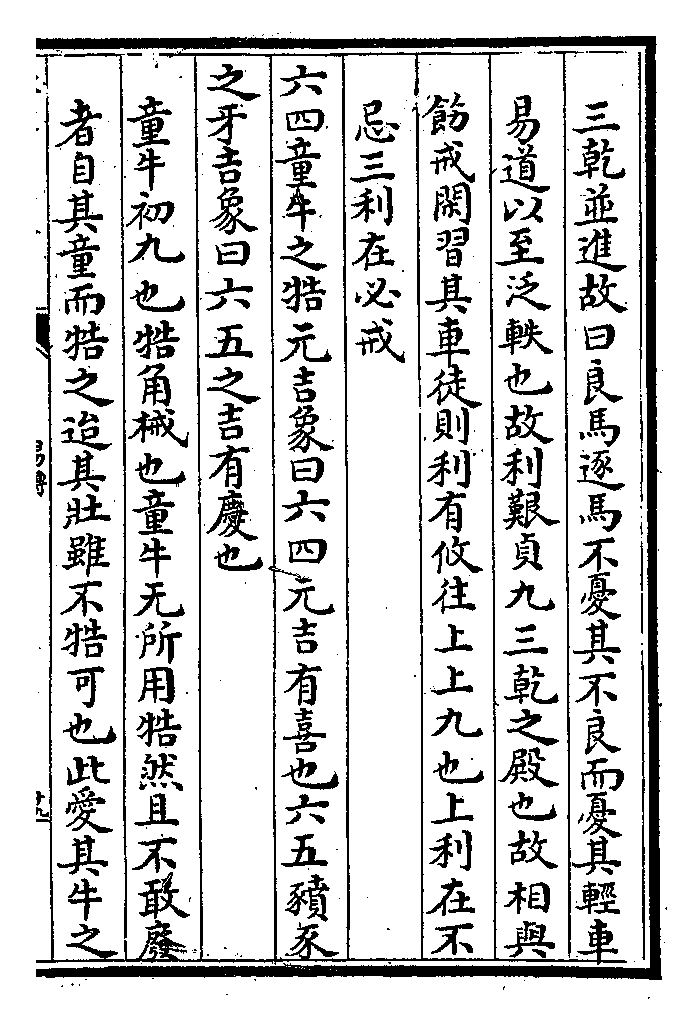 三乾並進故曰良馬逐馬不憂其不良而憂其輕車
易道以至泛軼也故利艱貞九三乾之殿也故相與
飭戒閑習其車徒則利有攸往上上九也上利在不
忌三利在必戒
六四童牛之牿元吉象曰六四元吉有喜也六五豶豕
之牙吉象曰六五之吉有慶也
童牛初九也牿角械也童牛无所用牿然且不敢廢
者自其童而牿之迨其壯雖不牿可也此愛其牛之
易傳